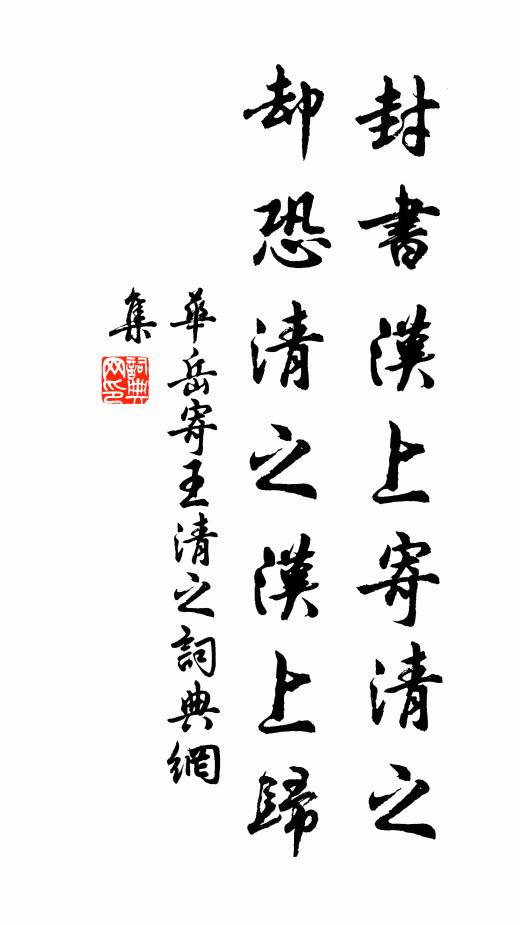 封書漢上寄清之
却恐清之漢上歸
華岳寄王清之詞典網
集
詞典网印